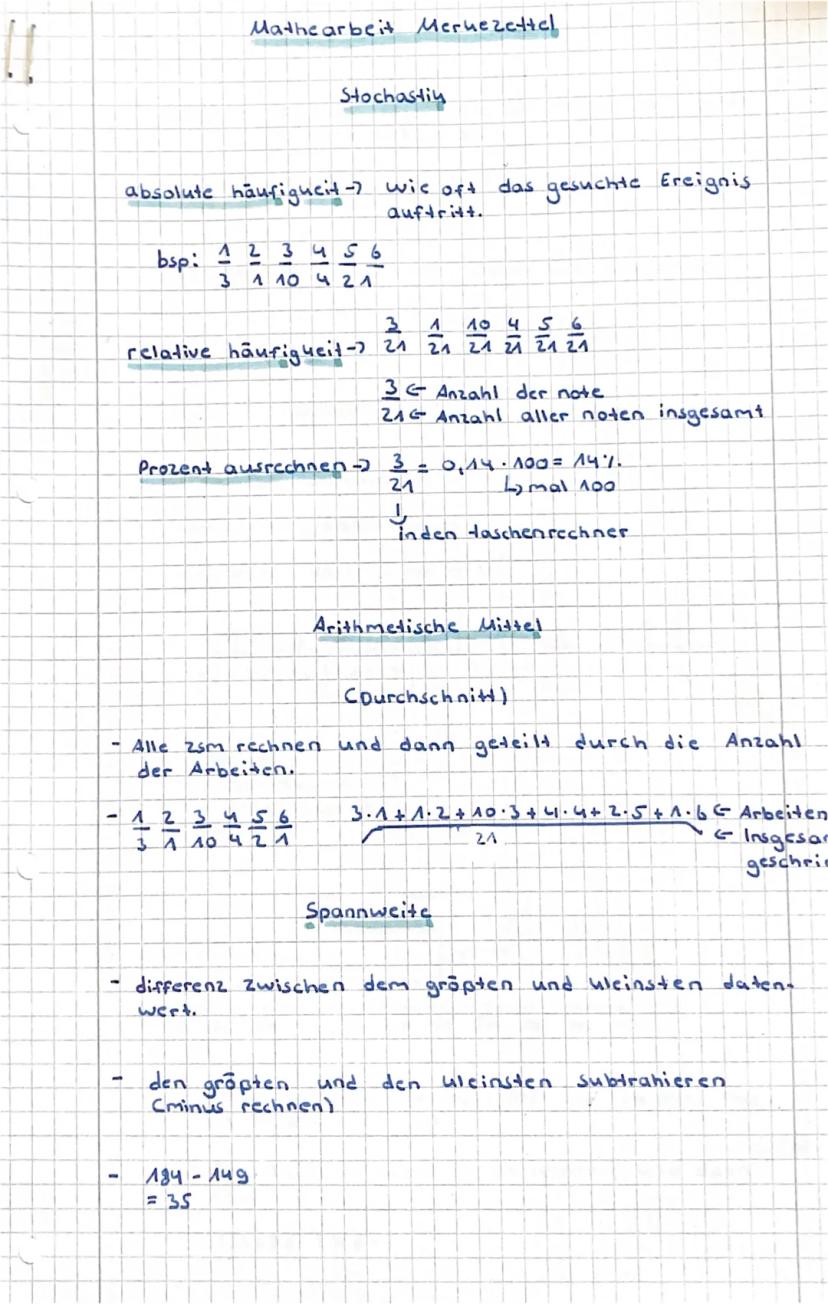 Mathearbeit Merkezettel
Stochastik
absolute häufigkeit -> wie oft das gesuchte Ereignis
auftritt.
bsp: 1/3 2/1 3/10 4/4 5/2 6/1
relative häufigkeit -> 3/21 1/21 10/21 4/21 5/21 6/21
3 <- Anzahl der note
21 <- Anzahl aller noten insgesamt
Prozent ausrechnen -> 3/21 = 0,14 · 100 = 14%.
↳ mal 100
↓
in den taschenrechner
Arithmetische Mittel
(Durchschnitt)
- Alle zsm rechnen und dann geteilt durch die Anzahl
der Arbeiten.
- 1/3 2/1 3/10 4/4 5/2 6/1 3·1+1·2+10·3+4·4+2·5+1·6 <- Arbeiten
21 <- Insgesa
geschri
Spannweite
- differenz zwischen dem größten und kleinsten daten-
wert.
- den größten und den kleinsten subtrahieren
(minus rechnen)
- 184 - 149
= 35